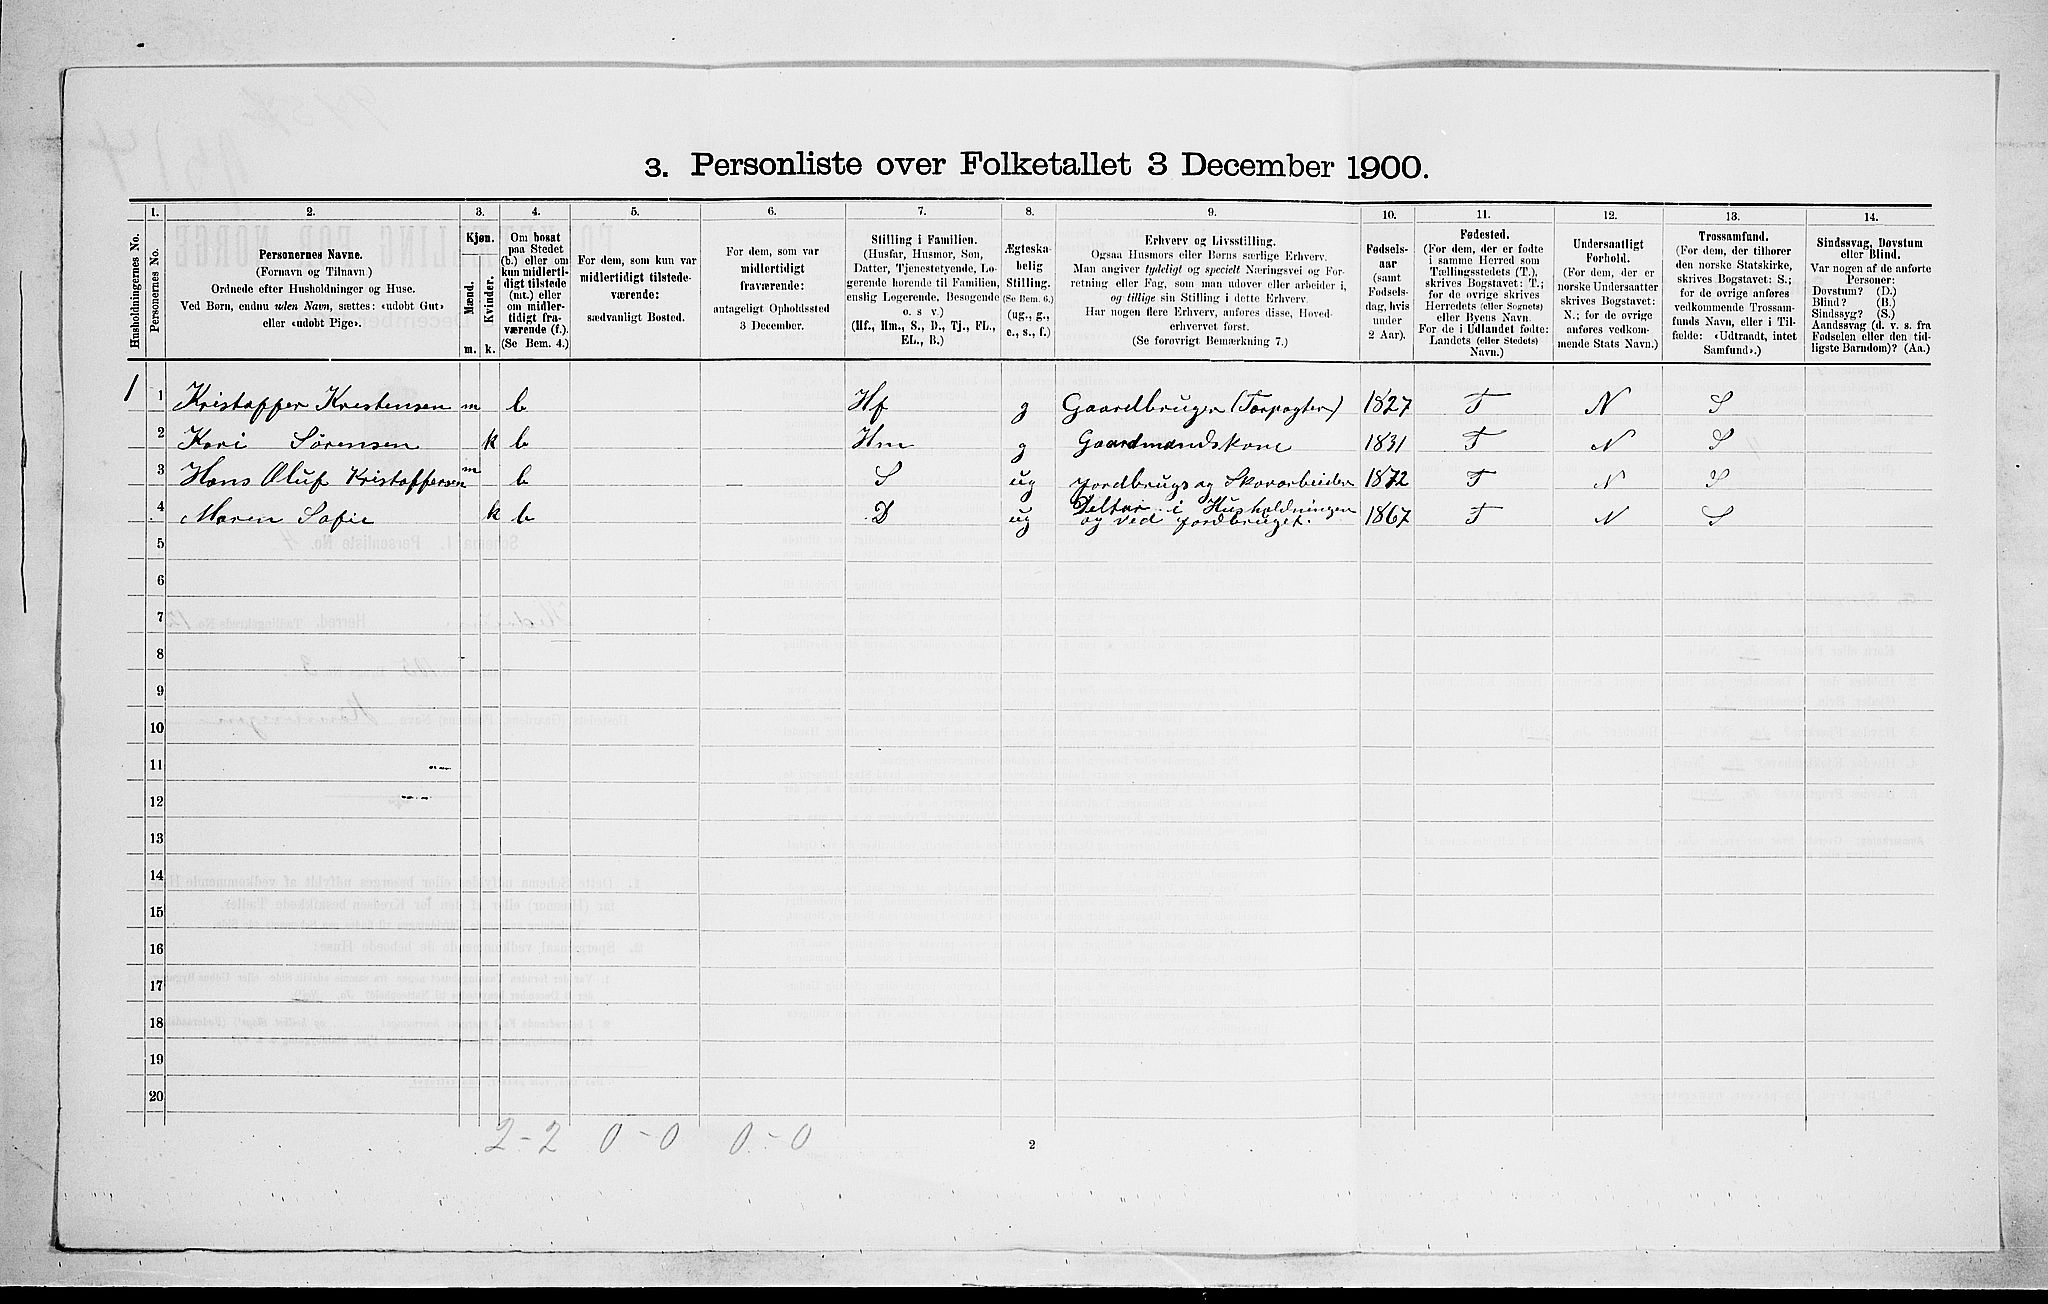 3. Personliste over Folketallet 3 December 1900.
Husholdningernes No.
1.
Personernes No.
2.
Personernes Navne.
(Fornavn og Tilnavn)
Ordnede efter Husholdninger og Huse.
Ved Børn, endnu uden Navn, sættes: «udøbt Gut»
eller «udøbt Pige».
3.
Kjøn.
Mænd.
Kvinder.
m. k.
4.
Om bosat
paa Stedet
(b.) eller om
kun midlerti-
digt tilstede
(mt.) eller
om midler-
tidigt fra-
værende (f.).
(Se Bem. 4.)
5.
For dem, som kun var
midlertidigt tilstede-
værende:
sædvanligt Bosted.
6.
For dem, som var
midlertidigt
fraværende:
antageligt Opholdssted
3 December.
7.
Stilling i Familien.
(Husfar, Husmor, Søn,
Datter, Tjenestetyende, Lo-
gerende hørende til Familien,
enslig Logerende, Besøgende
o. s v.)
(Hf., Hm., S., D., Tj., FL.,
EL., B.)
8.
Ægteska-
belig
Stilling.
(Se Bem. 6.)
(ug., g.,
e., s., f.)
9.
Erhverv og Livsstilling.
Ogsaa Husmors eller Børns særlige Erhverv.
Man angiver tydeligt og specielt Næringsvei og For-
retning eller Fag, som man udøver eller arbeider i,
og tillige sin Stilling i dette Erhverv.
Har nogen flere Erhverv, anføres disse, Hoved-
erhvervet først.
(Se forøvrigt Bemærkning 7.)
10.
Fødsels-
aar
(samt
Fødsels-
dag, hvis
under
2 Aar).
11.
Fødested.
(For dem, der er fødte
i samme Herred som
Tællingsstedets (T.),
skrives Bogstavet: T.;
for de øvrige skrives
Herredets (eller Sognets)
eller Byens Navn.
For de i Udlandet fødte:
Landets (eller Stedets)
Navn.)
12.
Undersaatligt
Forhold.
(For dem, der er
norske Undersaatter
skrives Bogstavet:
N.; for de øvrige
anføres vedkom-
mende Stats Navn.)
13.
Trossamfund.
(For dem, der tilhører
den norske Statskirke,
skrives Bogstavet: S.;
for de øvrige anføres
vedkommende Trossam-
funds Navn, eller i Til-
fælde: «Udtraadt, intet
Samfund».)
14.
Sindssvag, Døvstum
eller Blind.
Var nogen af de anførte
Personer:
Døvstum? (D.)
Blind? (B.)
Sindssyg? (S.)
Aandssvag (d. v. s. fra
Fødselen eller den tid-
ligste Barndom)? (Aa.)
1 1 Kristoffer Kristensen m b Hf g Gaardbruger (Forpagter) 1827 T N S
2 Kari Sørensen k b Hm g Gaardmandskone 1831 T N S
3 Hans Oluf Kristoffersen m b S ug Jordbrugs og Skovarbeider 1872 T N S
4 Maren Sofie k b D ug Deltar i Husholdningen
og ved Jordbruget. 1867 T N S
5
6
7
8
9
10
11
12
13
14
15
16
17
18
19
20
2 - 2 0 - 0 0 - 0
2